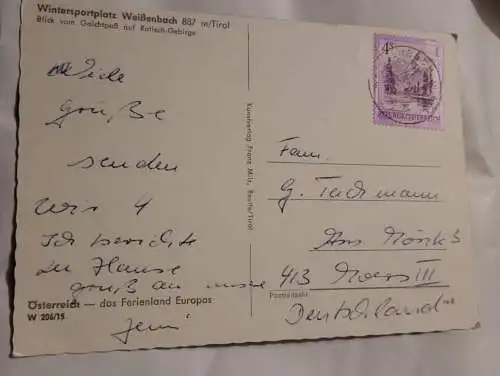 Wintersportplatz Weißenbach 887 m/Tirol
Blick vom Gaichtpaß auf Rottach-Gebirge
Viele
grüße
senden
wir 4
Ich berichte
zu Hause
gruß an
Österreich — das Ferienland Europas
W 206/15
Kunstverlag Franz Milz, Reutte/Tirol
4 S
REPUBLIK ÖSTERREICH
Fam.
G. Teichmann
413 Moers III
Postleitzahl
Deutschland